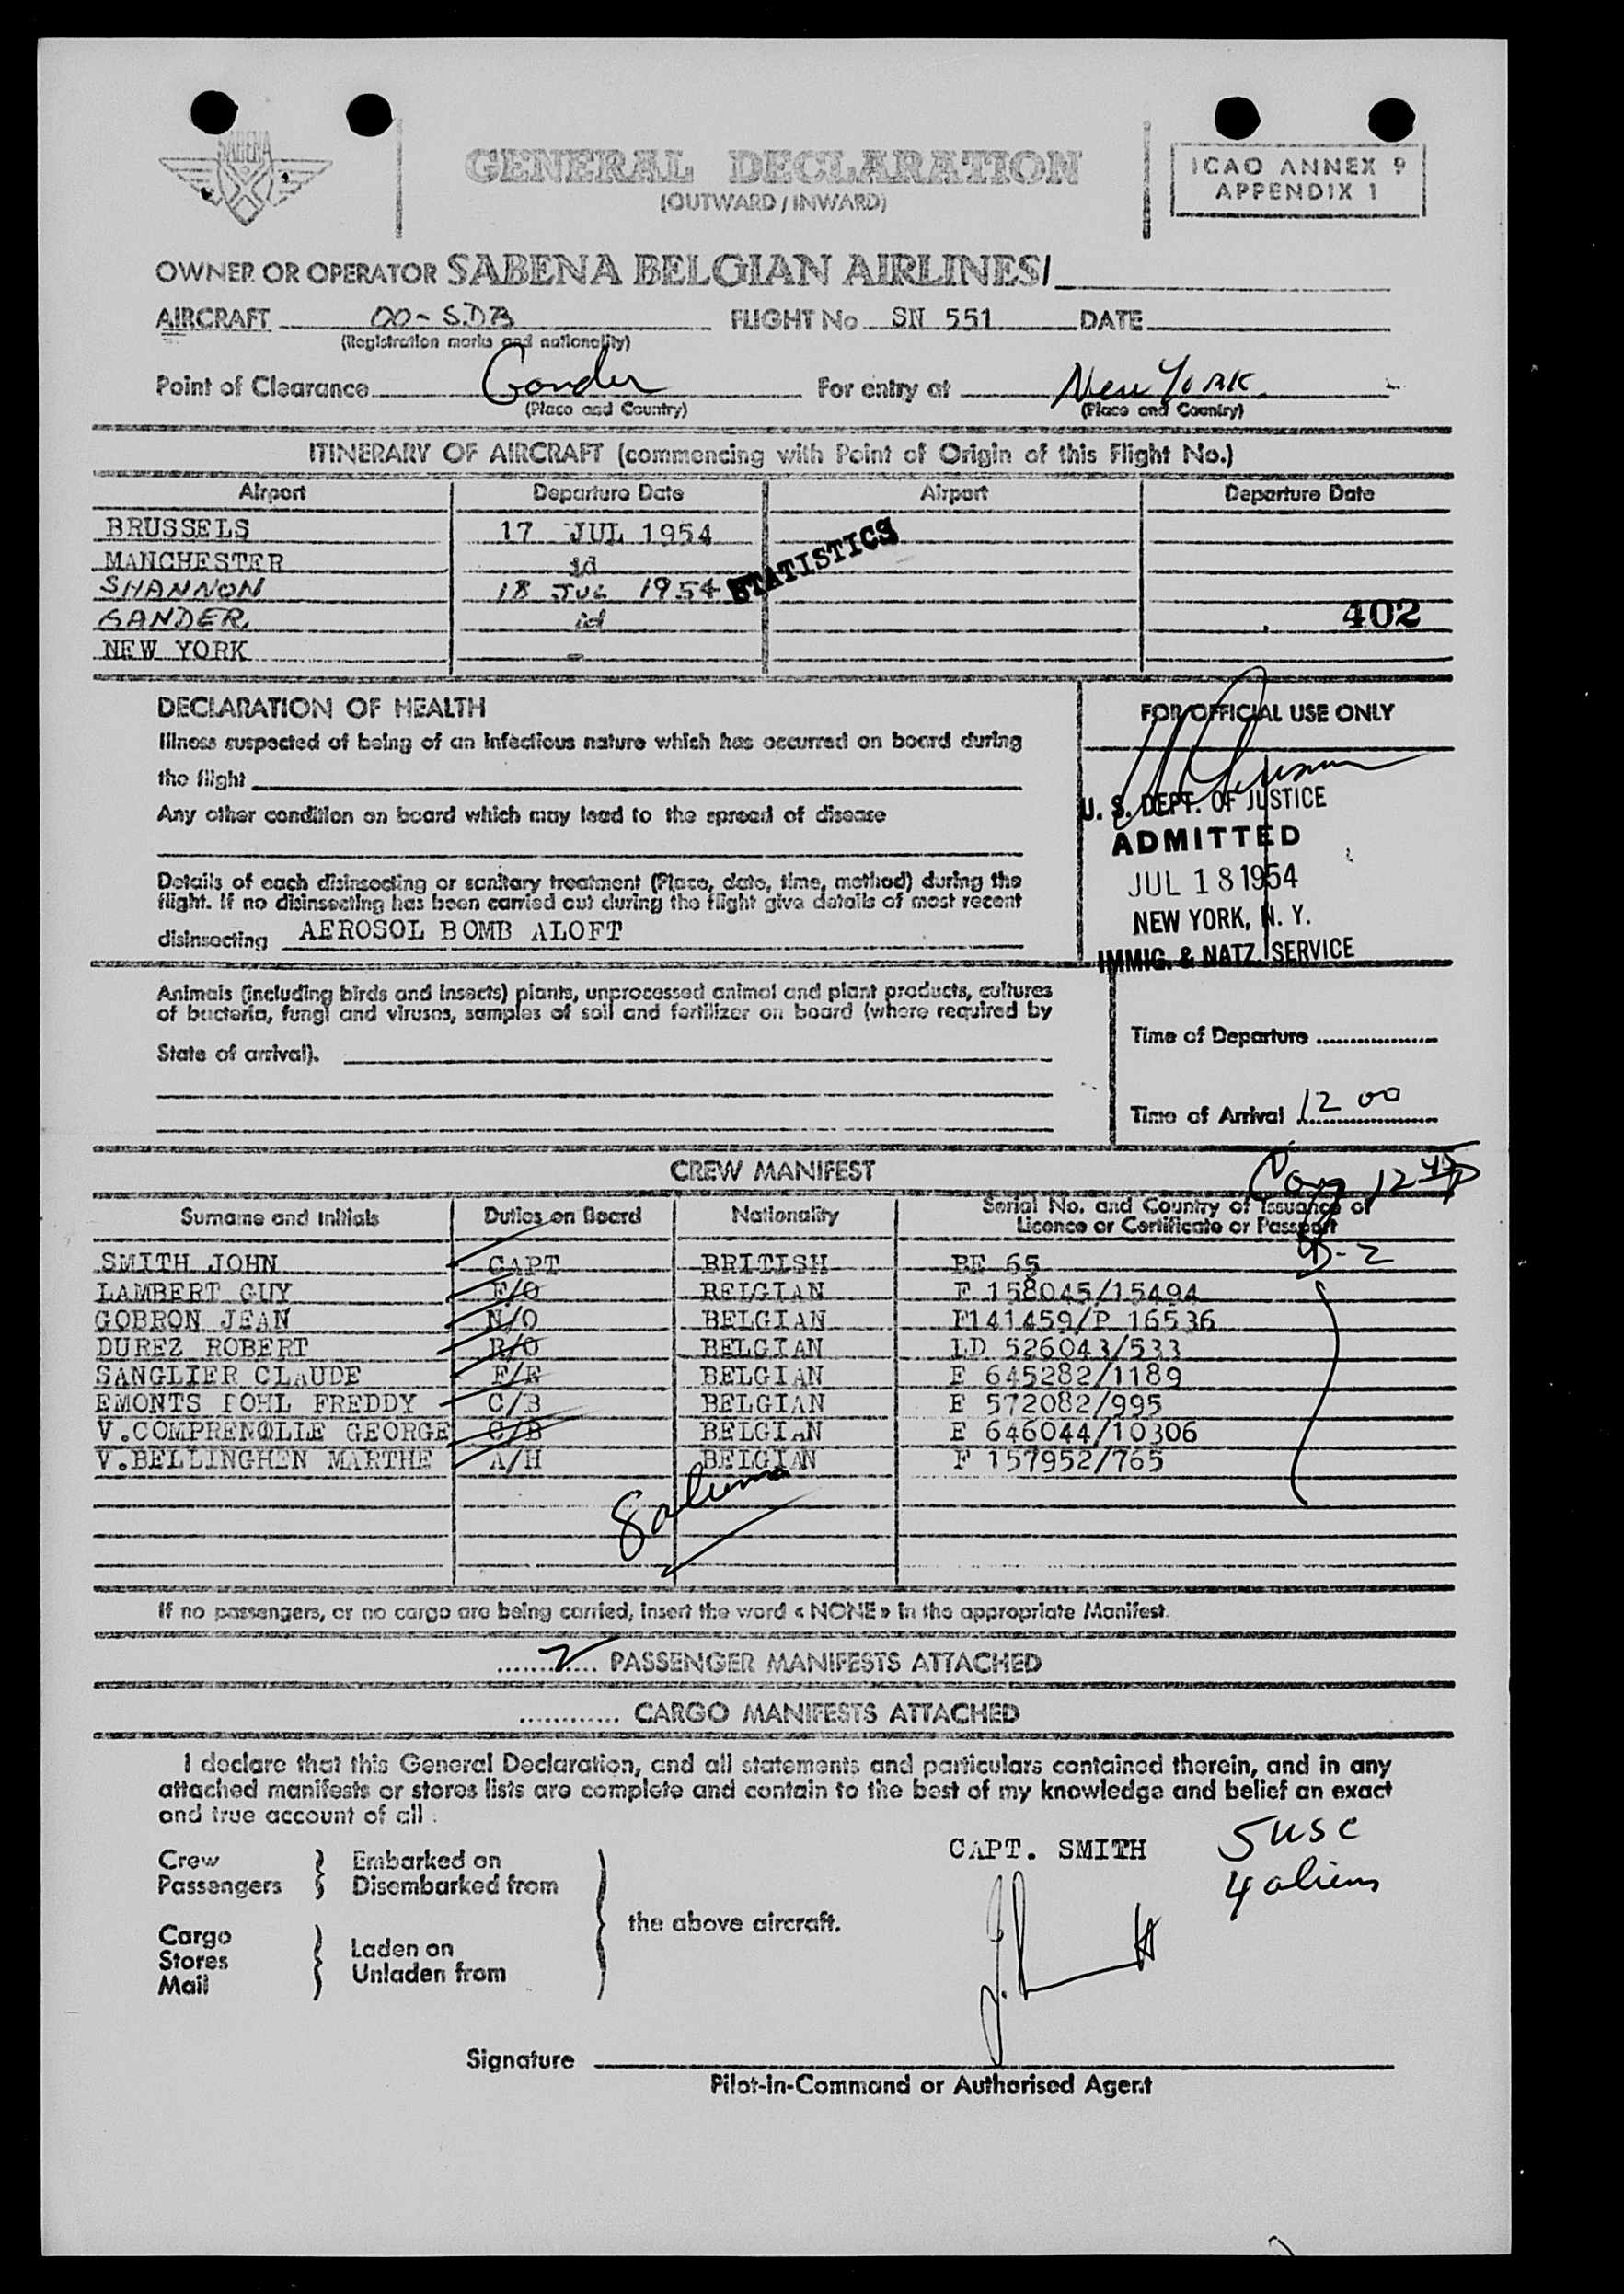 SABENA
GENERAL DECLARATION
(OUTWARD / INWARD)
ICAO ANNEX 9
APPENDIX 1
OWNER OR OPERATOR SABENA BELGIAN AIRLINES/
AIRCRAFT OO-SDB FLIGHT No SN 551 DATE
(Registration marks and nationality)
Point of Clearance Gander For entry at New York
(Place and Country) (Place and Country)
ITINERARY OF AIRCRAFT (commencing with Point of Origin of this Flight No.)
Airport Departure Date Airport Departure Date
BRUSSELS 17 JUL 1954
STATISTICS
MANCHESTER id
SHANNON 18 JUL 1954
GANDER id 402
NEW YORK -
DECLARATION OF HEALTH
FOR OFFICIAL USE ONLY
Illness suspected of being of an infectious nature which has occurred on board during
the flight
Any other condition on board which may lead to the spread of disease
U. S. DEPT. OF JUSTICE
ADMITTED
JUL 18 1954
NEW YORK, N. Y.
IMMIG. & NATZ. SERVICE
Details of each disinsecting or sanitary treatment (Place, date, time, method) during the
flight. If no disinsecting has been carried out during the flight give details of most recent
disinsecting AEROSOL BOMB ALOFT
Animals (including birds and insects) plants, unprocessed animal and plant products, cultures
of bacteria, fungi and viruses, samples of soil and fertilizer on board (where required by
State of arrival).
Time of Departure
Time of Arrival 12 00
CREW MANIFEST
Surname and Initials Duties on Board Nationality Serial No. and Country of Issuance of
Licence or Certificate or Passport
D-2
SMITH JOHN CAPT BRITISH BE 65
LAMBERT GUY F/O BELGIAN F 158045/15494
GOBRON JEAN N/O BELGIAN F141459/P 16536
DUREZ ROBERT R/O BELGIAN LD 526043/533
SANGLIER CLAUDE F/E BELGIAN E 645282/1189
EMONTS POHL FREDDY C/B BELGIAN E 572082/995
V.COMPRENOLLE GEORGE C/B BELGIAN E 646044/10306
V.BELLINGHEN MARTHE A/H BELGIAN F 157952/765
If no passengers, or no cargo are being carried, insert the word « NONE » in the appropriate Manifest.
2 PASSENGER MANIFESTS ATTACHED
............ CARGO MANIFESTS ATTACHED
I declare that this General Declaration, and all statements and particulars contained therein, and in any
attached manifests or stores lists are complete and contain to the best of my knowledge and belief an exact
and true account of all :
CAPT. SMITH
5 USC
4 aliens
Crew
Passengers
Embarked on
Disembarked from
Cargo
Stores
Mail
Laden on
Unladen from
the above aircraft.
Signature
Pilot-in-Command or Authorised Agent